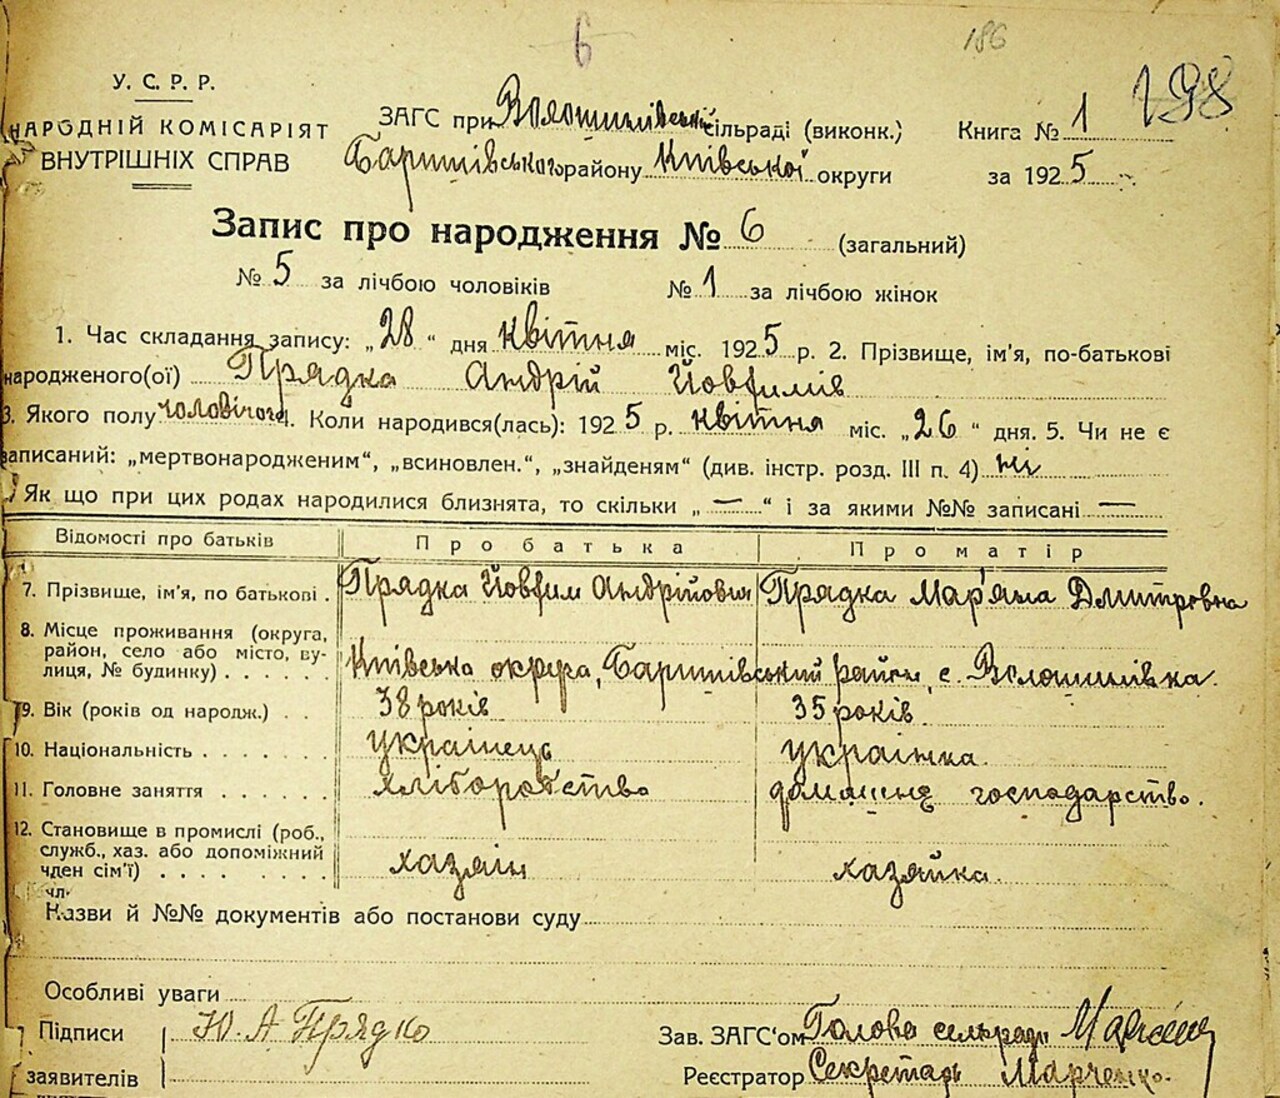 6
186
198
У. С. Р. Р.
НАРОДНІЙ КОМІСАРІЯТ
ВНУТРІШНІХ СПРАВ
ЗАГС при Волошинівській сільраді (виконк.)
Баришівського району Київської округи
Книга № 1
за 1925
Запис про народження № 6 (загальний)
№ 5 за лічбою чоловіків № 1 за лічбою жінок
1. Час складання запису: „28“ дня квітня міс. 1925 р. 2. Прізвище, ім'я, по-батькові
народженого(ої) Прядка Андрій Йовфимів
3. Якого полу чоловічого 4. Коли народився(лась): 1925 р. квітня міс. „26“ дня. 5. Чи не є
записаний: „мертвонародженим“, „всиновлен.“, „знайденям“ (див. інстр. розд. III п. 4) ні
Як що при цих родах народилися близнята, то скільки „—“ і за якими №№ записані —
Відомості про батьків Про батька Про матір
7. Прізвище, ім'я, по батькові . Прядка Йовфим Андрійович Прядка Мар'яна Дмитровна
8. Місце проживання (округа,
район, село або місто, ву-
лиця, № будинку) . . . . . . Київська округа, Баришівський район, с. Волошинівка.
9. Вік (років од народж.) . . 38 років 35 років.
10. Національність . . . . . . українець українка.
11. Головне заняття . . . . . . хліборобство домашнє господарство.
12. Становище в промислі (роб.,
служб., хаз. або допоміжний
член сім'ї) . . . . . . . . хазяїн хазяйка.
чл.
Назви й №№ документів або постанови суду
Особливі уваги
Підписи Ю. А Прядко
заявителів
Зав. ЗАГС'ом Голова сельради
Реєстратор Секретарь Марченко.